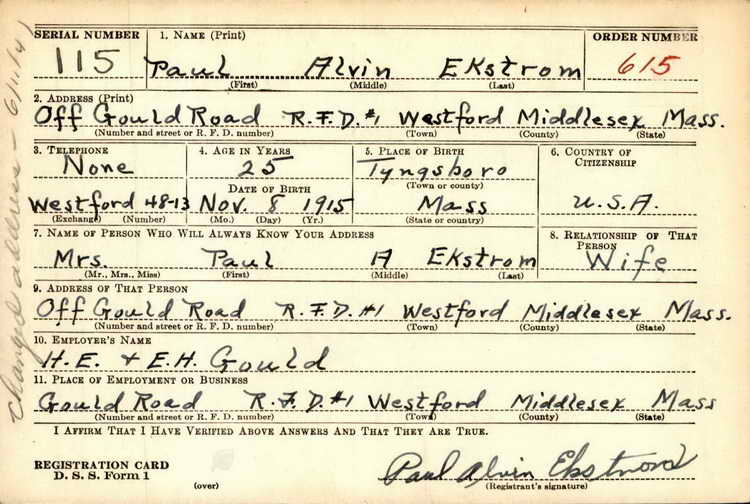 SERIAL NUMBER 1. NAME (Print) ORDER NUMBER
115 Paul Alvin Ekstrom 615
(First) (Middle) (Last)
2. ADDRESS (Print)
Off Gould Road R.F.D. #1 Westford Middlesex Mass.
(Number and street or R. F. D. number) (Town) (County) (State)
3. TELEPHONE 4. AGE IN YEARS 5. PLACE OF BIRTH 6. COUNTRY OF CITIZENSHIP
None 25 Tyngsboro
(Town or county)
DATE OF BIRTH
Westford 48-13 Nov. 8 1915 Mass U.S.A.
(Exchange) (Number) (Mo.) (Day) (Yr.) (State or country)
7. NAME OF PERSON WHO WILL ALWAYS KNOW YOUR ADDRESS 8. RELATIONSHIP OF THAT PERSON
Mrs. Paul A Ekstrom Wife
(Mr., Mrs., Miss) (First) (Middle) (Last)
9. ADDRESS OF THAT PERSON
Off Gould Road R.F.D. #1 Westford Middlesex Mass.
(Number and street or R. F. D. number) (Town) (County) (State)
10. EMPLOYER'S NAME
H.E. & E.H. Gould
11. PLACE OF EMPLOYMENT OR BUSINESS
Gould Road R.F.D. #1 Westford Middlesex Mass
(Number and street or R. F. D. number) (Town) (County) (State)
I AFFIRM THAT I HAVE VERIFIED ABOVE ANSWERS AND THAT THEY ARE TRUE.
REGISTRATION CARD
D. S. S. Form 1 (over) Paul Alvin Ekstrom
(Registrant's signature)
Changed address -